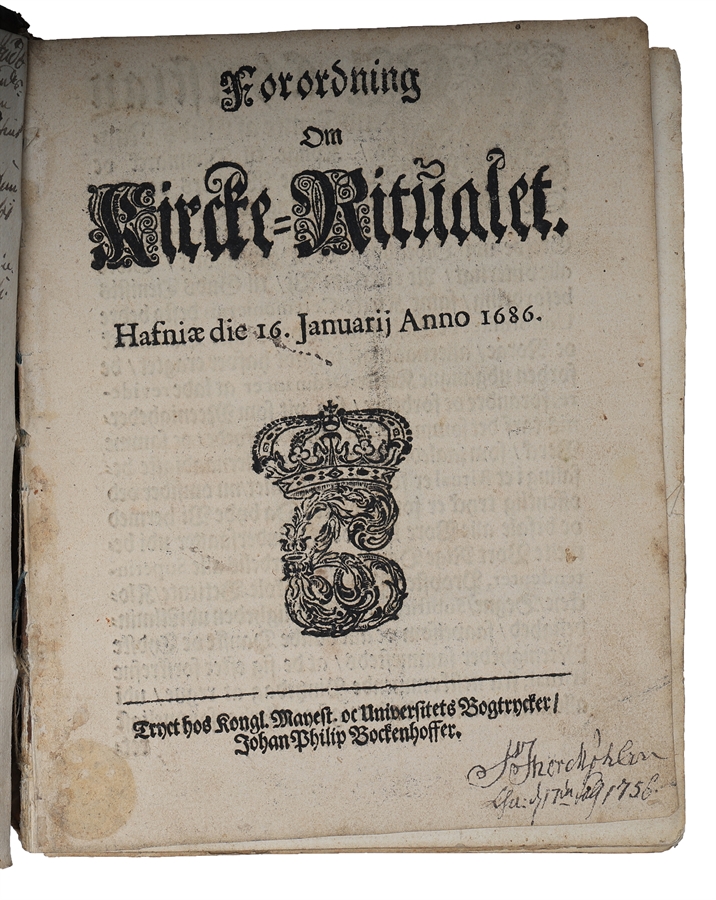 Forordning
Om
Kircke=Ritualet.
Hafniæ die 16. Januarij Anno 1686.
Tryct hos Kongl. Mayest. oc Universitets Bogtrycker/
Johan Philip Bockenhoffer.
1756.